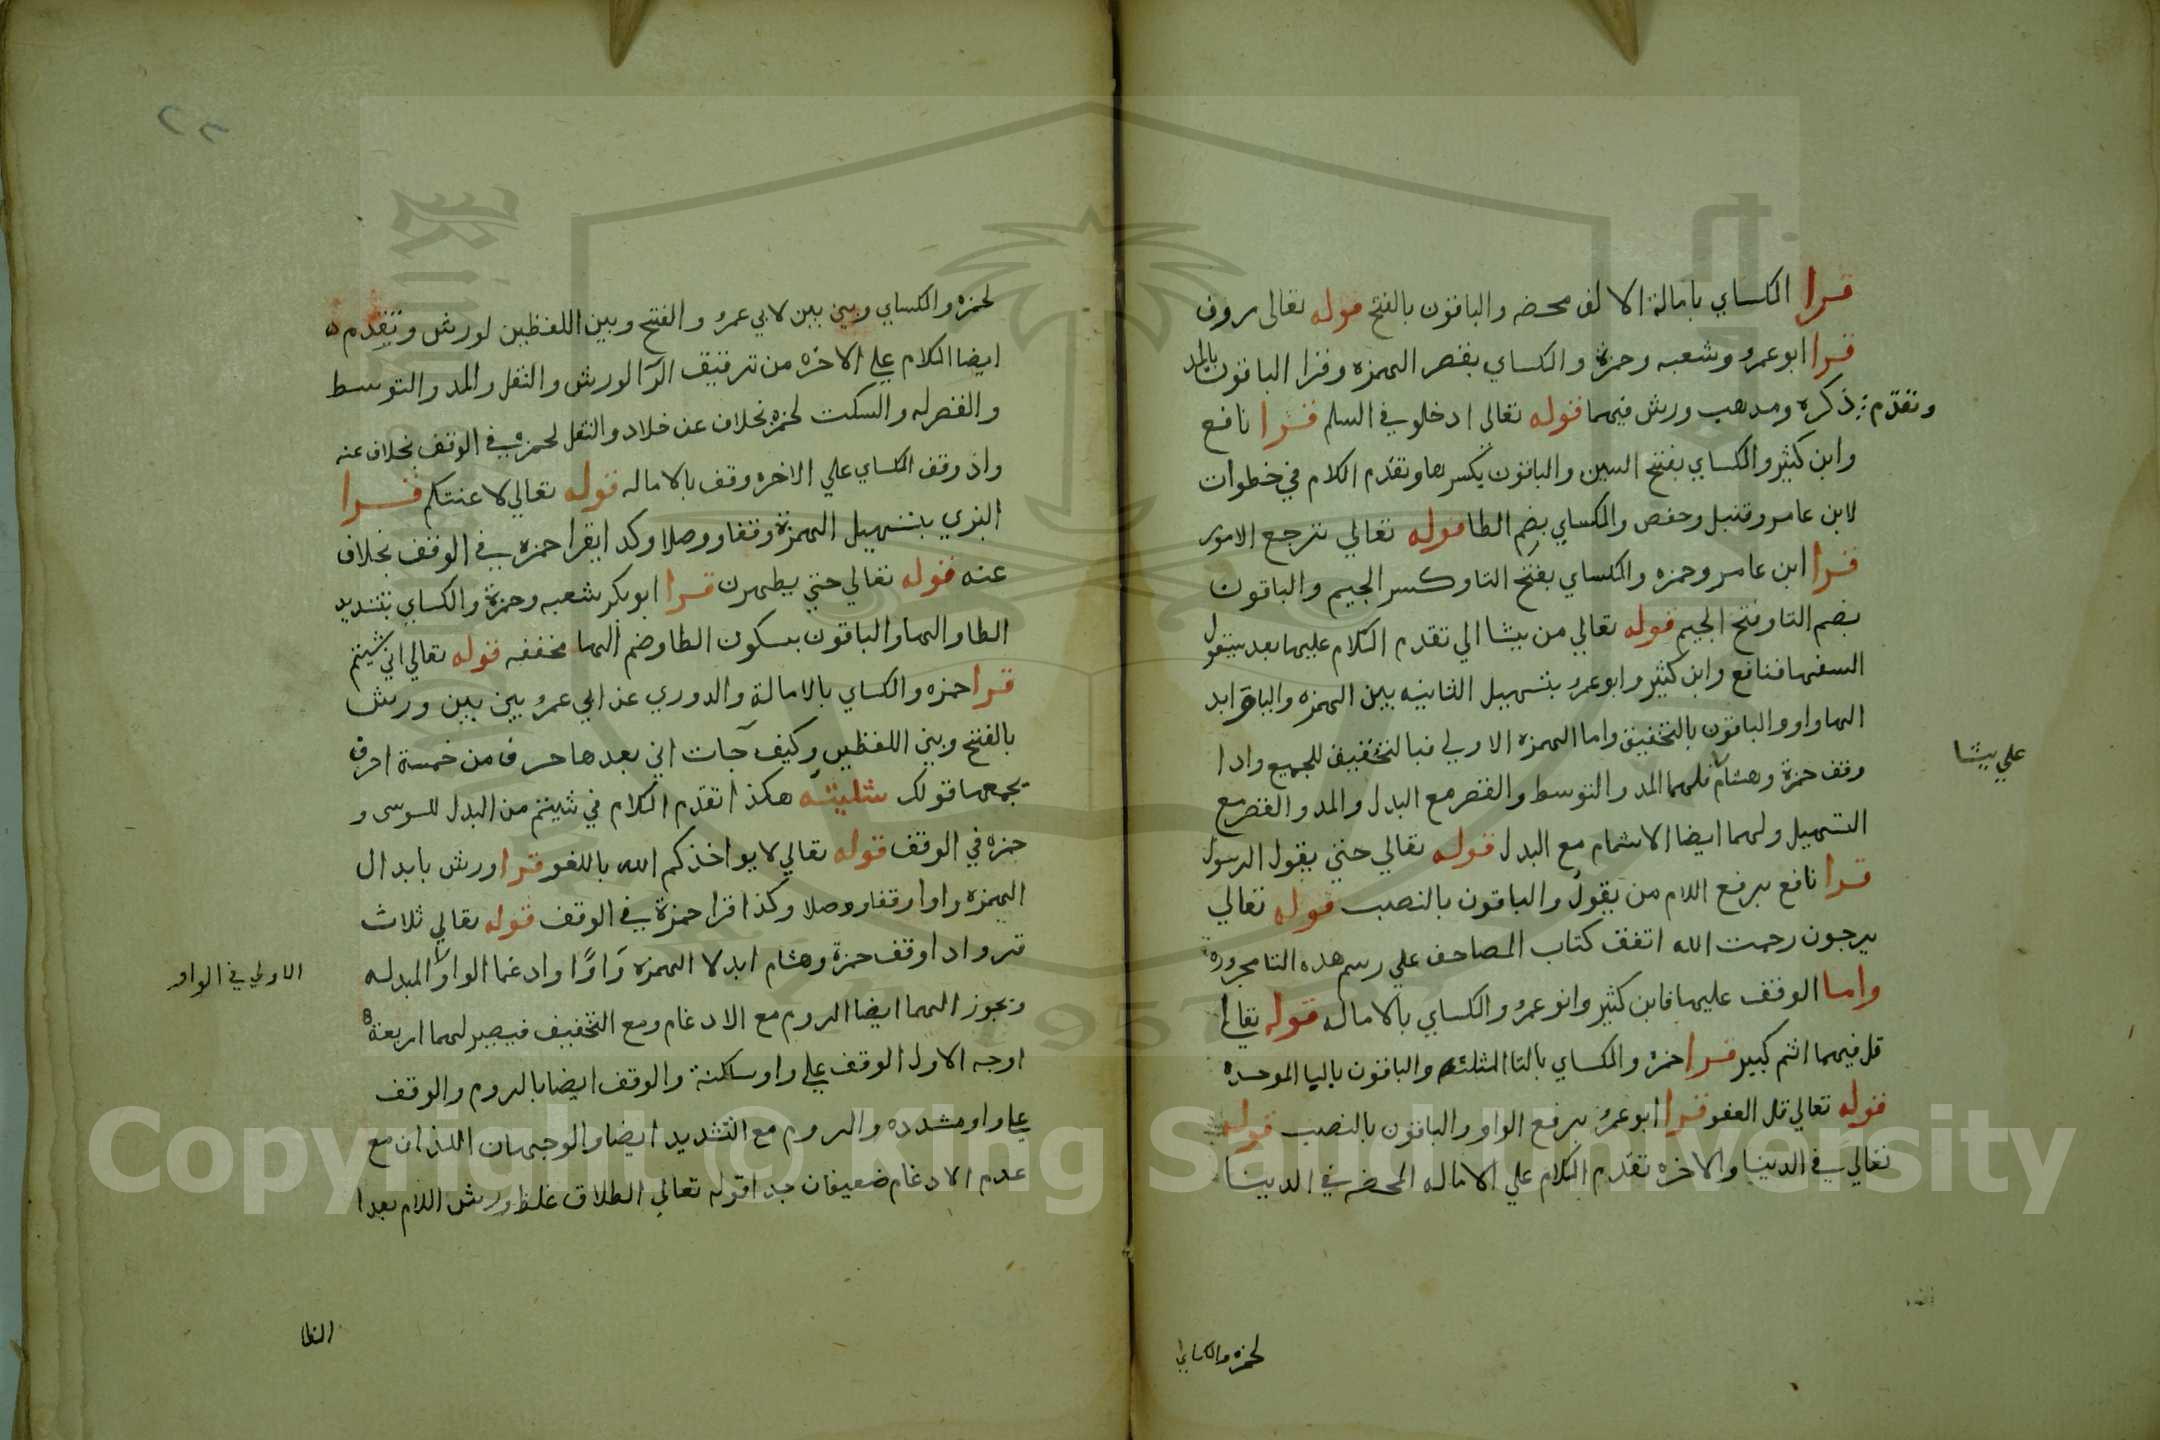 قرا الكساي بامالة الالف محضه والباقون بالفتح قوله تعالى روف
قرا ابوعمرو وشعبه وحمزة والكساي بقصر الهمزه وقرا الباقون بالمد
وتقدم ذكره ومدهب ورش فيهما قوله تعالي ادخلوا في السلم قرا نافع
وابن كثير والكساي بفتح السين والباقون بكسرها وتقدم الكلام في خطوات
لابن عامر وقنبل وحفص والكساي بضم الطا قوله تعالي ترجع الامور
قرا ابن عامر وحمزه والكساي بفتح التا وكسر الجيم والباقون
بضم التا وفتح الجيم قوله تعالي من يشا الي تقدم الكلام عليها بعد سيقول
السفها فنافع وابن كثير وابوعمرو بتسهيل الثانيه بين الهمزه واليا وابد
الها واو والباقون بالتحقيق واما الهمزه الاولي فبالتحقيق للجميع وادا
وقف حمزة وهشام فلهما المد والتوسط والقصر مع البدل والمد والقصر مع
علي يشا
التسهيل ولهما ايضا الاشمام مع البدل قوله تعالي حتي يقول الرسول
قرا نافع برفع اللام من يقول والباقون بالنصب قوله تعالي
يرجون رحمت الله اتفق كتاب المصاحف علي رسم هده التا مجرورة
واما الوقف عليها فابن كثير وابوعمرو والكساي بالاماله قوله تعالي
قل فيهما اثم كبير قرا حمزه والكساي بالتا المثلثه والباقون باليا الموحده
قوله تعالي قل العفو قرا ابوعمرو برفع الواو والباقون بالنصب قوله
تعالي في الدينا والاخره تقدم الكلام علي الاماله المحضه في الدينا
لحمزه والكساي
٢٣
لحمزه والكساي وبين بين لابي عمرو والفتح وبين اللفظين لورش وتقدم
ايضا الكلام علي الاخره من ترقيق الرا لورش والنقل والمد والتوسط
والقصر له والسكت لحمزه بخلاف عن خلاد والنقل لحمزه في الوقف بخلاف عنه
واذ وقف الكساي علي الاخره وقف بالاماله قوله تعالي لاعنتكم قرا
البزي بتسهيل الهمزة وقفا ووصلا وكدا يقرا حمزه في الوقف بخلاف
عنه قوله تعالي حتي يطهرن قرا ابوبكر شعبه وحمزة والكساي بتشديد
الطا والها والباقون بسكون الطا وضم الها مخففه قوله تعالي اني شيتم
قرا حمزه والكساي بالامالة والدوري عن ابي عمرو بين بين ورش
بالفتح وبين اللفظين وكيف جات اني بعدها حرف من خمسة احرف
يجمعها قولك شليته هكذا تقدم الكلام في شيتم من البدل للسوسى و
حمزه في الوقف قوله تعالي لا يواخذكم الله باللغو قرا ورش بابدال
الهمزه واوا وقفا ووصلا وكذا قرا حمزة في الوقف قوله تعالي ثلاث
قرو واد اوقف حمزة وهشام ابدلا الهمزه واوا وادغما الواو المبدله
الاولي في الواو
وتجوز الهما ايضا الروم مع الادغام ومع التخفيف فيصير لهما اربعة
اوجه الاول الوقف علي واو ساكنة والوقف ايضا بالروم والوقف
علي واو مشدده والروم مع التشديد ايضا والوجهان اللذان مع
عدم الادغام ضعيفان جدا قوله تعالي الطلاق غلظ ورش اللام بعدا
الظا
Copyright © King Saud University
1957